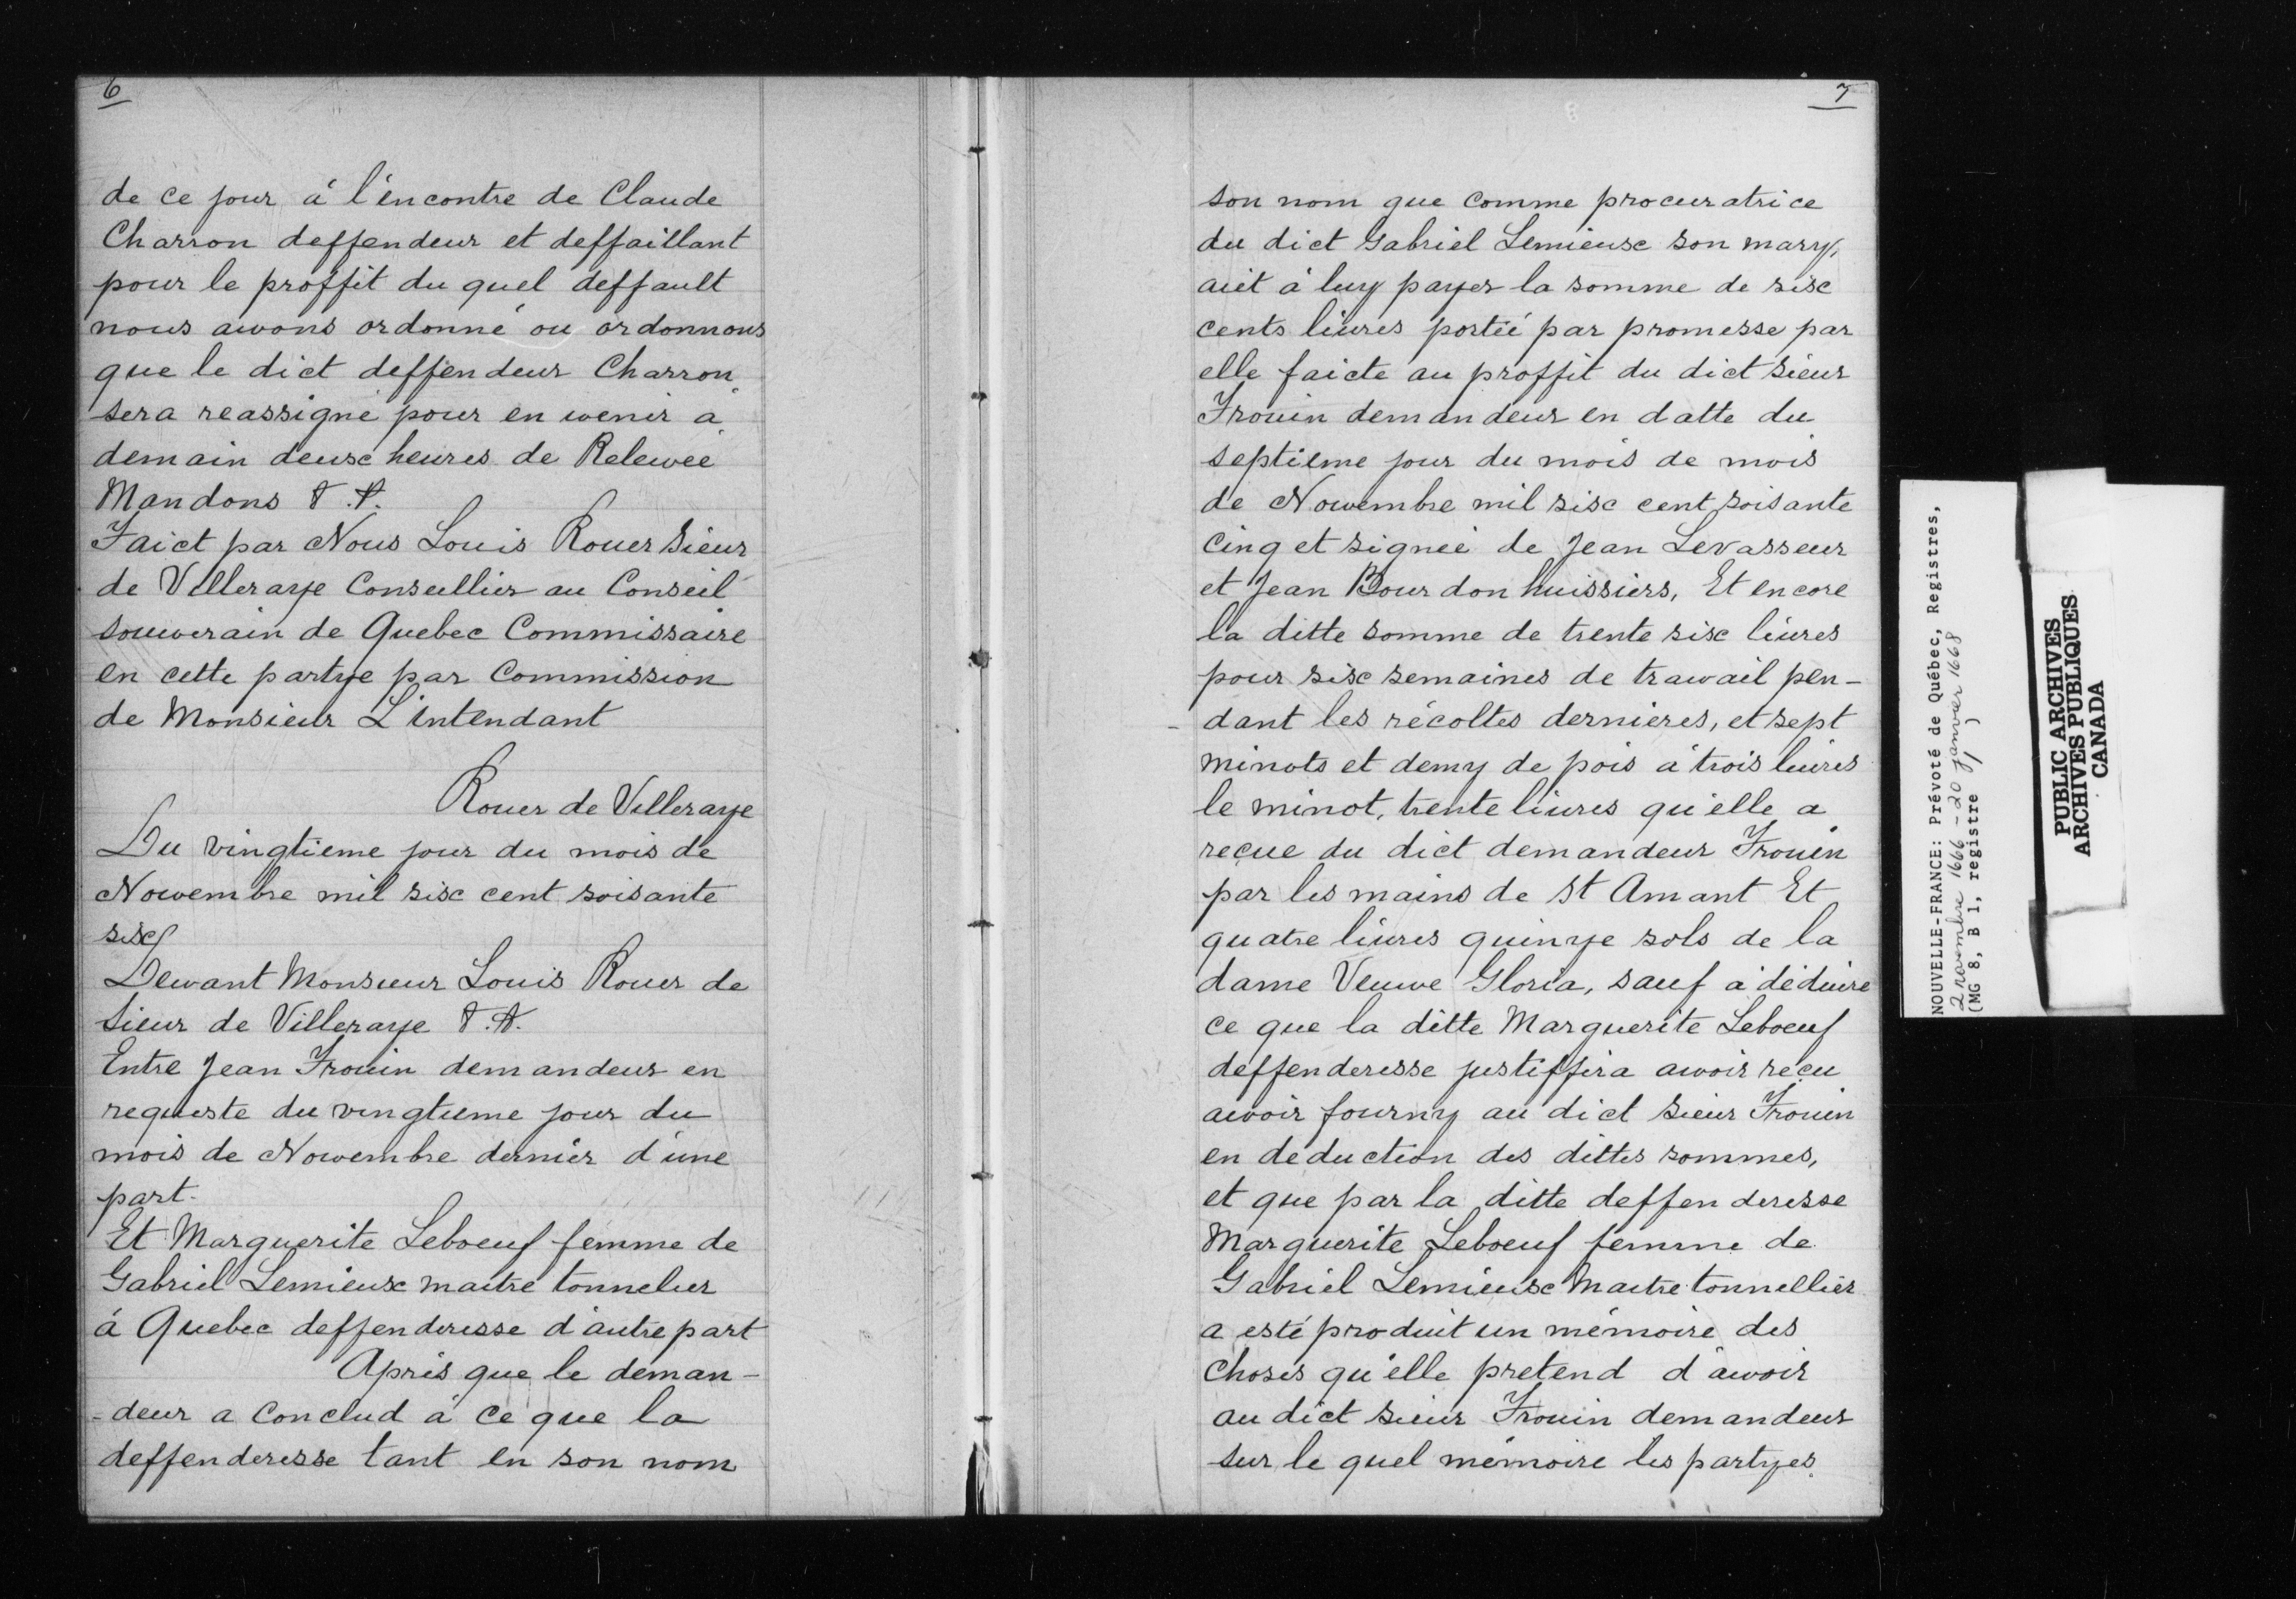 6
de ce jour á l'éncontre de Claude
Charron deffendeur et deffaillant
pour le proffit du quel deffault
nous awons ordonné ou ordonnons
que le dict deffendeur Charron
sera reassigné pour en wenir a
demain deuxe heures de Relewée
Mandons &.&.
Faict par Nous Louis Rouer Sieur
de Villeraye Conseillier au Conseil
souwerain de Quebec Commissaire
en cette partye par Commission
de Monsieur L'intendant
Rouer de Villeraye
Du vingtieme jour du mois de
Nowembre mil six cent soisante
six
Dewant Monsieur Louis Rouer de
Sieur de Villeraye &.&.
Entre Jean Frouin demandeur en
requeste du vingtieme jour du
mois de Nowembre dernier d'une
part.
Et Marguerite Leboeuf femme de
Gabriel Lemieux maitre tonnelier
á Quebec deffenderesse d'autre part
Aprés que le deman-
-deur a Conclud á ce que la
deffenderesse tant en son nom
7
son nom que comme procuratrice
du dict Gabriel Lemieux son mary,
aiet á luy payer la somme de six
cents liures portié par promesse par
elle faicte au proffit du dict sieur
Frouin demandeur en datte du
septieme jour du mois de mois
de Nowembre mil six cent soisante
Cinq et signeé de Jean Levasseur
et Jean Bourdon huissiers, Et encore
la ditte somme de trente six liures
pour six semaines de trawail pen-
-dant les récoltes dernieres, et sept
minots et demy de pois á trois liures
le minot, trente liures qu'elle a
reçue du dict demandeur Frouin
par les mains de St Amant Et
quatre liures quinze sols de la
dame Veuwe Gloria, sauf a déduire
ce que la ditte Marguerite Leboeuf
deffenderesse justiffira awoir reçu
awoir fourny au dict sieur Frouin
en déduction des dittes sommes,
et que par la ditte deffenderesse
Marguerite Leboeuf femme de
Gabriel Lemieux Maitre tonnellier
a esté produit un mémoire des
choses qu'elle pretend d'awoir
au dict sieur Frouin demandeur
sur le quel mémoire les partyes
NOUVELLE-FRANCE: Prévoté de Québec, Registres,
2 novembre 1666 - 20 janvier 1668
(MG 8, B 1, registre 1)
PUBLIC ARCHIVES
ARCHIVES PUBLIQUES
CANADA